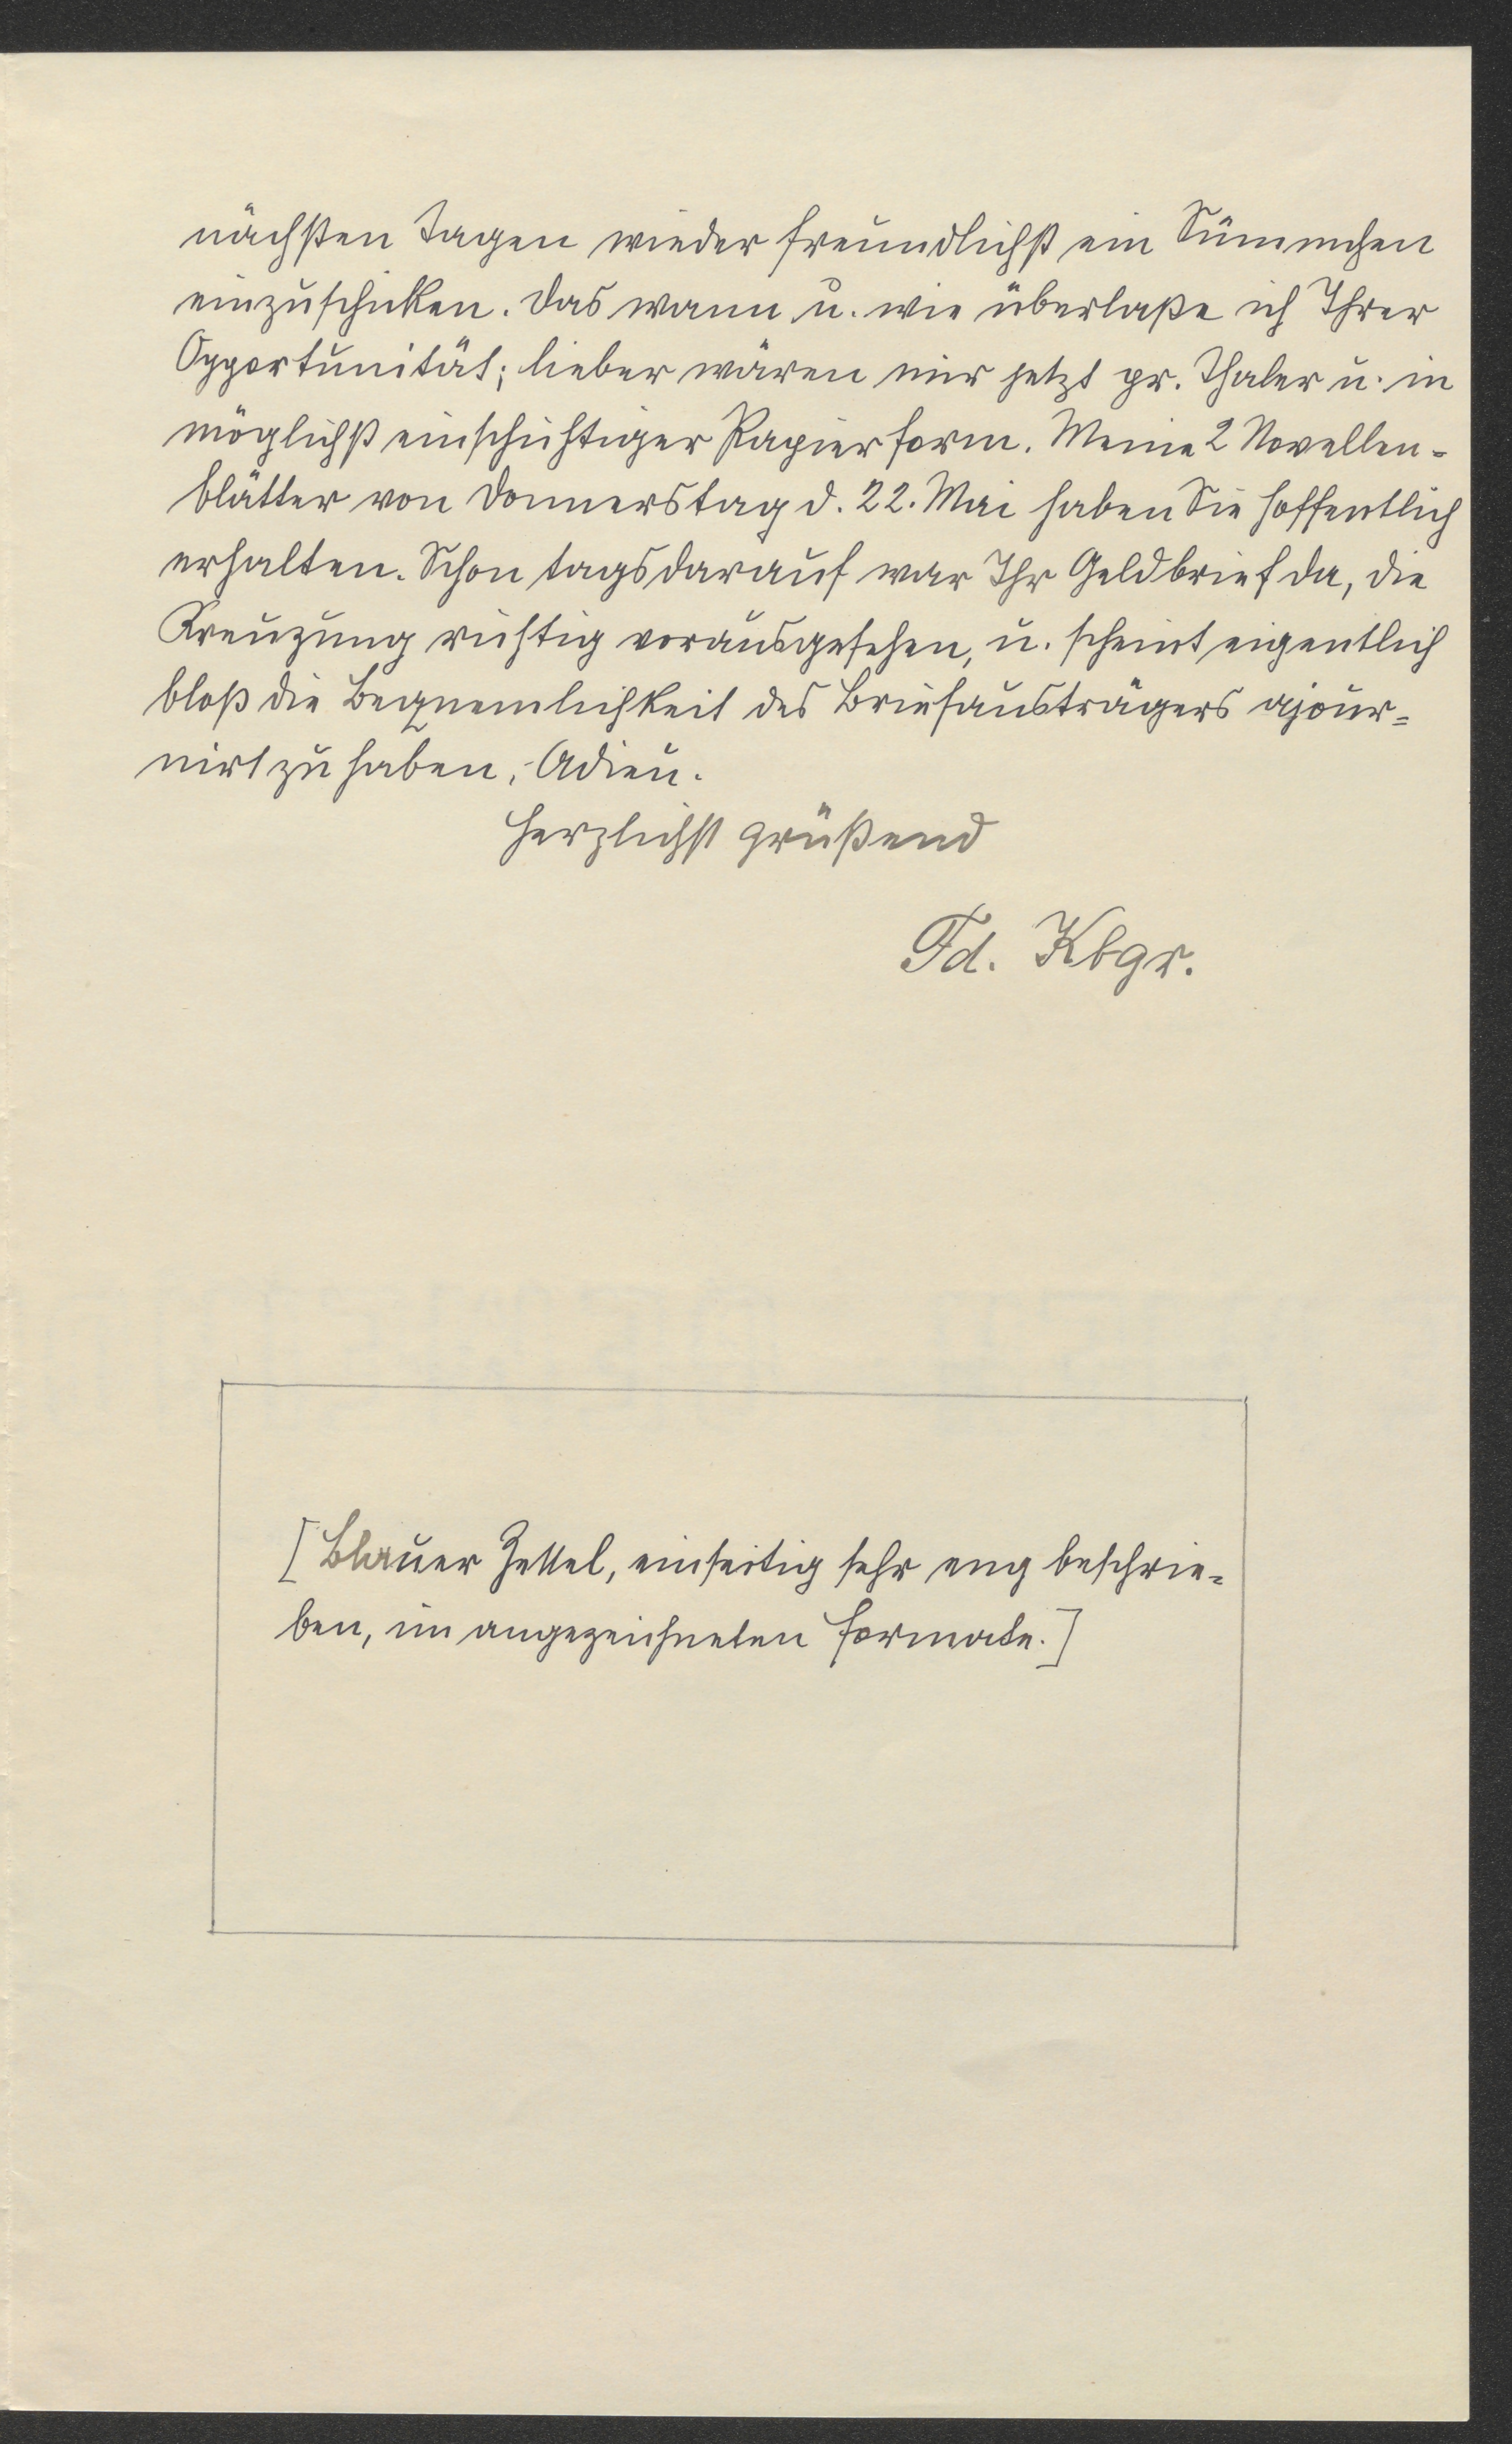 nächsten Tagen wieder freundlichst ein Sümmchen
einzuschicken. Das wann u. wie überlaße ich Ihrer
Opportunität; lieber wären mir jetzt pr. Thaler u. in
möglichst einschichtiger Papierform. Meine 2 Novellen-
blätter von Donnerstag d. 22. Mai haben Sie hoffentlich
erhalten. Schon tagsdarauf war Ihr Geldbrief da, die
Kreuzung richtig vorausgesehen, u. scheint eigentlich
bloß die Bequemlichkeit des Briefausträgers ajour=
nirt zu haben. Adieu.
Herzlichst grüßend
Fd. Kbgr.
[Blauer Zettel, einseitig sehr eng beschrie=
ben, im angezeichneten Formate.]